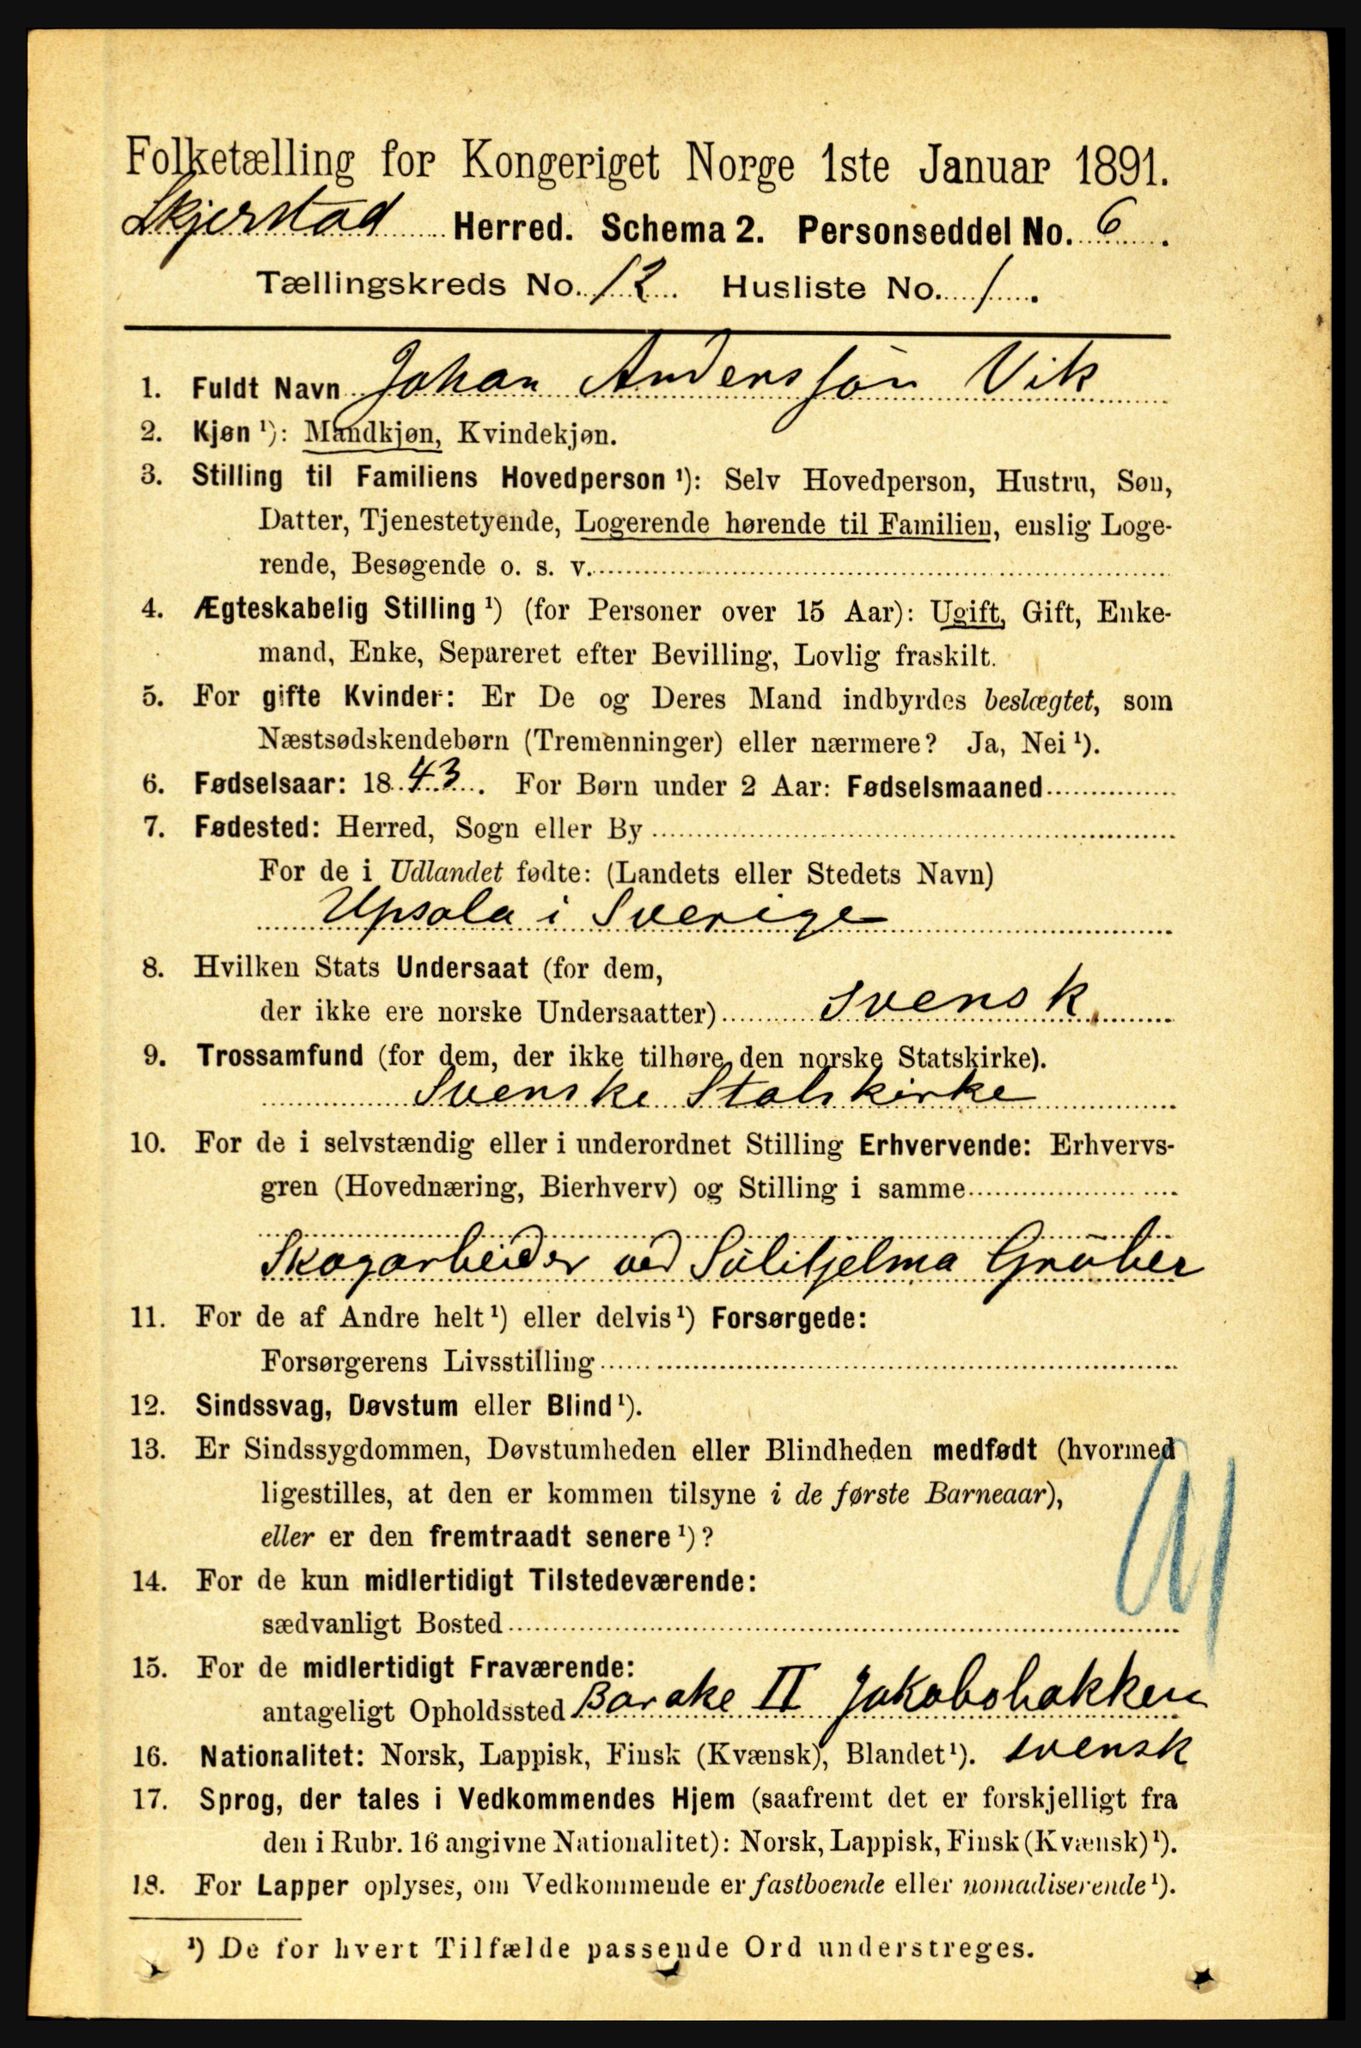 Folketælling for Kongeriget Norge 1ste Januar 1891.
Skjerstad Herred. Schema 2. Personseddel No. 6.
Tællingskreds No. 12 Husliste No. 1.
1. Fuldt Navn Johan Anderssøn Vik
2. Kjøn ¹): Mandkjøn, Kvindekjøn.
3. Stilling til Familiens Hovedperson ¹): Selv Hovedperson, Hustru, Søn,
Datter, Tjenestetyende, Logerende hørende til Familien, enslig Loge-
rende, Besøgende o. s. v.
4. Ægteskabelig Stilling ¹) (for Personer over 15 Aar): Ugift, Gift, Enke-
mand, Enke, Separeret efter Bevilling, Lovlig fraskilt.
5. For gifte Kvinder: Er De og Deres Mand indbyrdes beslægtet, som
Næstsødskendebørn (Tremenninger) eller nærmere? Ja, Nei ¹).
6. Fødselsaar: 1843. For Børn under 2 Aar: Fødselsmaaned
7. Fødested: Herred, Sogn eller By
For de i Udlandet fødte: (Landets eller Stedets Navn)
Upsala i Sverige
8. Hvilken Stats Undersaat (for dem,
der ikke ere norske Undersaatter) Svensk
9. Trossamfund (for dem, der ikke tilhøre den norske Statskirke).
Svenske Statskirke
10. For de i selvstændig eller i underordnet Stilling Erhvervende: Erhvervs-
gren (Hovednæring, Bierhverv) og Stilling i samme
Skogarbeider ved Sulitjelma Gruber
11. For de af Andre helt ¹) eller delvis ¹) Forsørgede:
Forsørgerens Livsstilling
12. Sindssvag, Døvstum eller Blind ¹).
13. Er Sindssygdommen, Døvstumheden eller Blindheden medfødt (hvormed
ligestilles, at den er kommen tilsyne i de første Barneaar),
eller er den fremtraadt senere ¹)?
14. For de kun midlertidigt Tilstedeværende:
sædvanligt Bosted
15. For de midlertidigt Fraværende:
antageligt Opholdssted Barake II Jakobsbakken
16. Nationalitet: Norsk, Lappisk, Finsk (Kvænsk), Blandet ¹). svensk
17. Sprog, der tales i Vedkommendes Hjem (saafremt det er forskjelligt fra
den i Rubr. 16 angivne Nationalitet): Norsk, Lappisk, Finsk (Kvænsk) ¹).
18. For Lapper oplyses, om Vedkommende er fastboende eller nomadiserende ¹).
¹) De for hvert Tilfælde passende Ord understreges.